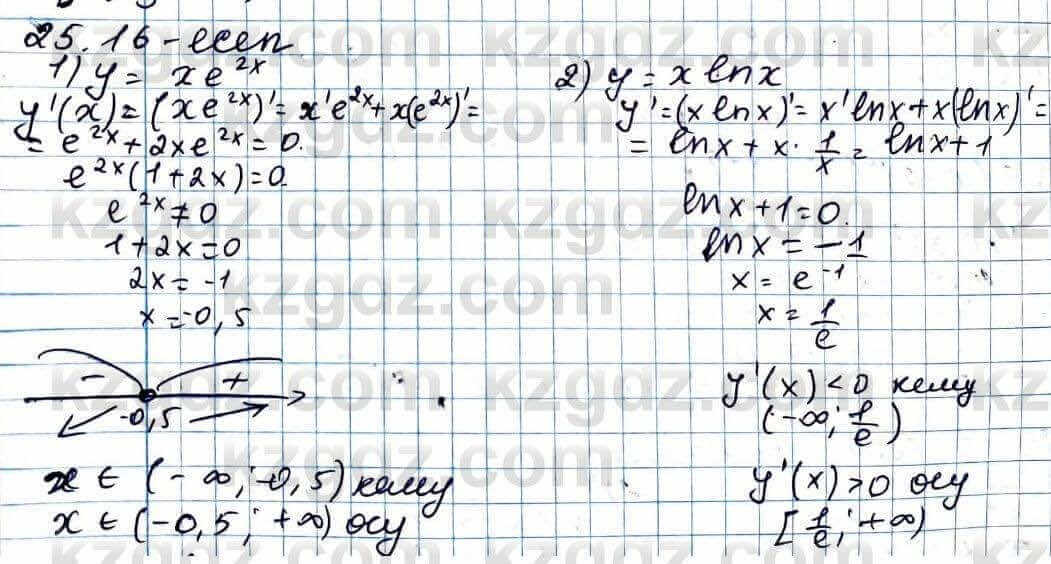 25.16-есеп
1) y = xe^{2x}
y'(x) = (xe^{2x})' = x'e^{2x} + x(e^{2x})' =
= e^{2x} + 2xe^{2x} = 0.
e^{2x}(1+2x)=0.
e^{2x} ≠ 0
1+2x=0
2x = -1
x = -0,5
- +
-0,5
x ∈ (-∞; -0,5) кему
x ∈ (-0,5; +∞) өсу
2) y = x lnx
y' = (x lnx)' = x' lnx + x(lnx)' =
= lnx + x · 1/x = lnx+1
lnx+1=0.
lnx = -1
x = e^{-1}
x = 1/e
y'(x) < 0 кему
(-∞; 1/e)
y'(x) > 0 өсу
[1/e; +∞)
kzgdz.com